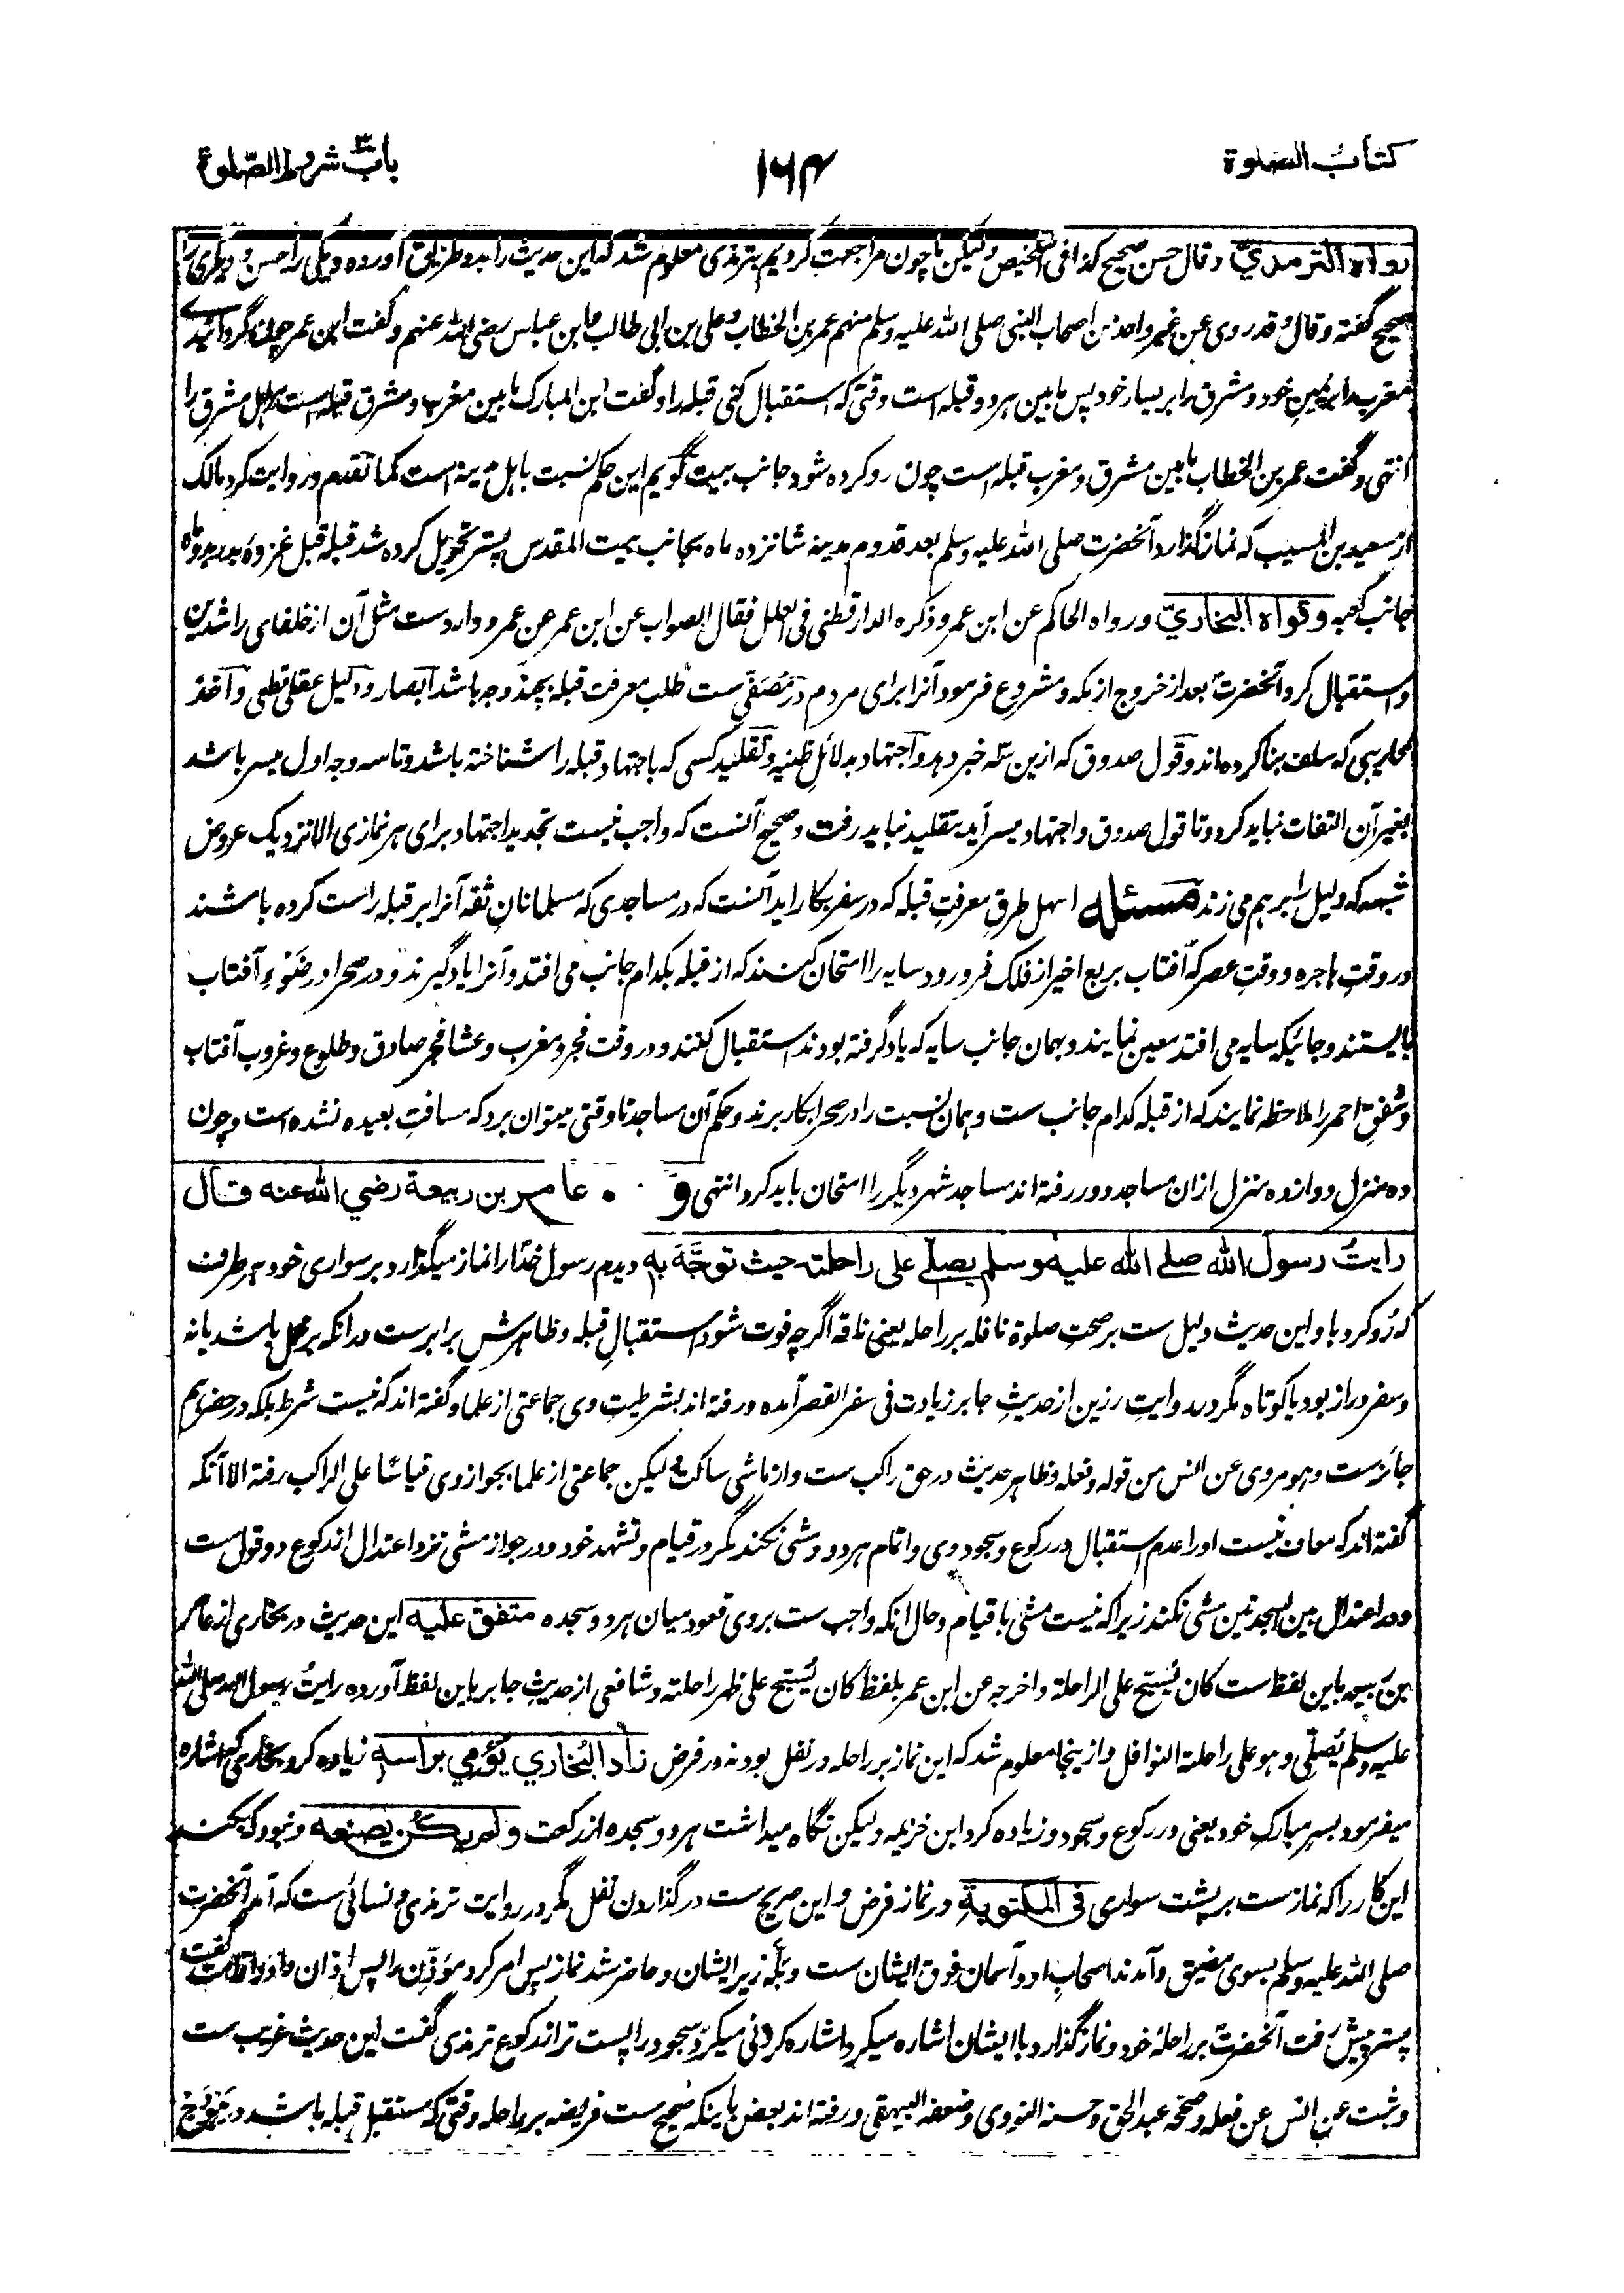 كتاب الصلوة
۱۶۴
باب شروط الصلوة
رواه الترمذي وقال حسن صحيح كذا فی التلخیص ولیکن ما چون مراجعت کردیم بترمذی معلوم شد که این حدیث را بدو طریق آورده ویکی را حسن و دیگری را
صحیح گفته وقال وقد روی عن غیر واحد من اصحاب النبی صلی الله علیه وسلم منهم عمر بن الخطاب وعلی بن ابی طالب وابن عباس رضی الله عنهم وگفت ابن عمر چون گردانیدی
مغرب را بر یمین خود ومشرق را بر یسار خود پس مابین هر دو قبله است وقتی که استقبال کنی قبله را وگفت ابن المبارک مابین مغرب ومشرق قبله است برای اهل مشرق را
انتهی وگفت عمر بن الخطاب مابین مشرق ومغرب قبله است چون رو کرده شود جانب بیت گویم این حکم نسبت باهل مدینه است کما تقدم وروایت کرد مالک
از سعید بن المسیب که نماز گذارد آنحضرت صلی الله علیه وسلم بعد قدوم مدینه شانزده ماه بجانب بیت المقدس پستر تحویل کرده شد قبله قبل غزوه بدر بدو ماه
جانب کعبه وقواه البخاري ورواه الحاکم عن ابن عمر وذکره الدارقطنی فی العلل فقال الصواب عن ابن عمر عن عمر ووارد ست مثل آن از خلفای راشدین
واستقبال کرد آنحضرت بعد از خروج از مکه ومشروع فرمود آنرا برای مردم در مصفی ست طلب معرفت قبله بچند وجه باشد ابصار ودلیل عقلی قطعی وآخذ
محاریبی که سلف بنا کرده اند وقول صدوق که ازین سه خبر دهد واجتهاد بدلائل ظنیه وتقلید کسی که باجتهاد قبله را شناخته باشد وتا سه وجه اول میسر باشد
بغیر آن التفات نباید کرد وتا قول صدوق واجتهاد میسر آید بتقلید نباید رفت وصحیح آنست که واجب نیست تجدید اجتهاد برای هر نمازی الا نزدیک عروض
شبهه که دلیل را برهم می زند مسئله اسهل طرق معرفت قبله که در سفر بکار اید آنست که در مساجدی که مسلمانان ثقه آنرا بر قبله راست کرده باشند
در وقت هاجره ووقت عصر که آفتاب بربع اخیر از فلک فرو رود سایه را امتحان کنند که از قبله بکدام جانب می افتد وآنرا یاد گیرند ودر صحرا در ضوء آفتاب
بایستند وجائیکه سایه می افتد معین نمایند وبهمان جانب سایه که یاد گرفته بودند استقبال کنند ودر وقت فجر ومغرب وعشا فجر صادق وطلوع وغروب آفتاب
وشفق احمر را ملاحظه نمایند که از قبله کدام جانب ست وهمان نسبت را در صحرا بکار برند وحکم آن مساجد تا وقتی میتوان برد که مسافت بعیده نشده است وچون
ده منزل دوازده منزل ازان مساجد دور رفته اند مساجد شهر دیگر را امتحان باید کرد انتهی و عامر بن ربيعة رضي الله عنه قال
رايت رسول الله صلے الله عليه وسلم يصلے على راحلته حيث توجّهَ به دیدم رسول خدا را نماز میگذارد بر سواری خود بهر طرف
که رو کرد باو این حدیث دلیل ست بر صحت صلوة نافله بر راحله یعنی ناقه اگرچه فوت شود استقبال قبله وظاهرش برابرست در انکه بر محمل باشد یا نه
وسفر دراز بود یا کوتاه مگر در روایت رزین از حدیث جابر زیادت فی سفر القصر آمده ورفته اند بشرطیت وی جماعتی از علما وگفته اند که نیست شرط بلکه در حضر هم
جائزست وهو مروی عن انس من قوله وفعله وظاهر حدیث در حق راکب ست واز ماشی ساکت لیکن جماعتی از علما بجواز وی قیاسًا علی الراکب رفته الا آنکه
گفته اند که معاف نیست او را عدم استقبال در رکوع وسجود وی واتمام هر دو ومشی نکند مگر در قیام وتشهد خود ودر جواز مشی نزد اعتدال از رکوع دو قول ست
ودر اعتدال بین السجدتین مشی نکند زیرا که نیست مشی با قیام وحال انکه واجب ست بروی قعود میان هر دو سجده متفق عليه این حدیث در بخاری از عامر
بن ربیعه باین لفظ ست کان یسبح علی الراحلة واخرجه عن ابن عمر بلفظ کان یسبح علی ظهر راحلته وشافعی از حدیث جابر باین لفظ آورده رایتُ رسول الله صلی الله
علیه وسلم یُصلّی وهو علی راحلته النوافل وازینجا معلوم شد که این نماز بر راحله در نفل بود نه در فرض زاد البُخاري يُؤمي براسه زیاده کرد بخاری که اشاره
میفرمود بسر مبارک خود یعنی در رکوع وسجود وزیاده کرد ابن خزیمه ولیکن نگاه میداشت هر دو سجده از رکعت ولم يكن يصنعه ونبود که بکند
این کار را که نماز ست بر پشت سواری فى المكتوبة در نماز فرض واین صریح ست در گذاردن نفل مگر در روایت ترمذی ونسائی ست که آمد آنحضرت
صلی الله علیه وسلم بسوی مضیق وآمدند اصحاب او وآسمان فوق ایشان ست وبله زیر ایشان وحاضر شد نماز پس امر کرد مؤذن را پس اذان داد واقامت گفت
پستر پیش رفت آنحضرت بر راحلهٔ خود ونماز گذارد با ایشان اشاره میکرد اشاره کردنی میکرد سجود را پست تر از رکوع ترمذی گفت این حدیث غریب ست
وثبت عن انس عن فعله وصححه عبد الحق وحسنه النووی وضعفه البیهقی ورفته اند بعض باینکه صحیح ست فریضه بر راحله وقتی که مستقبل قبله باشد در